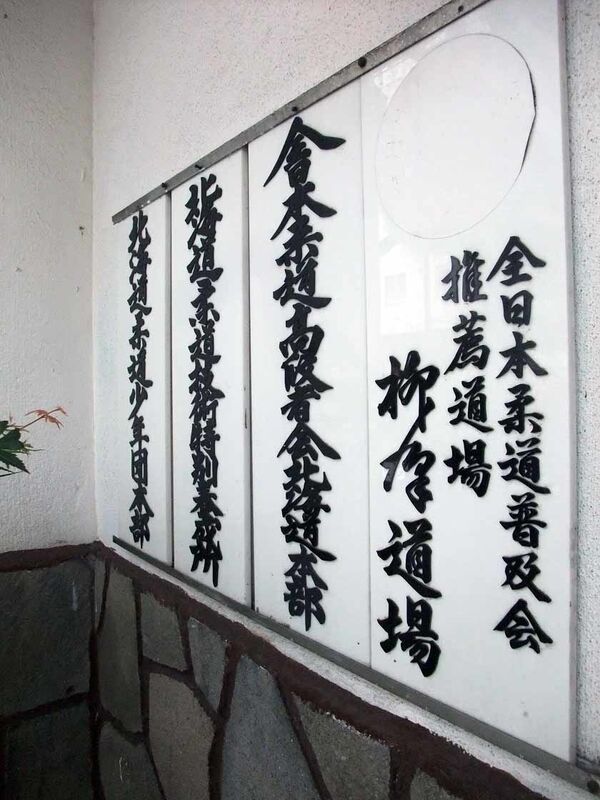 全日本柔道普及会
推薦道場
柳道場
全日本柔道高段者会北海道本部
北海道柔道技術特別養成所
北海道柔道少年団本部